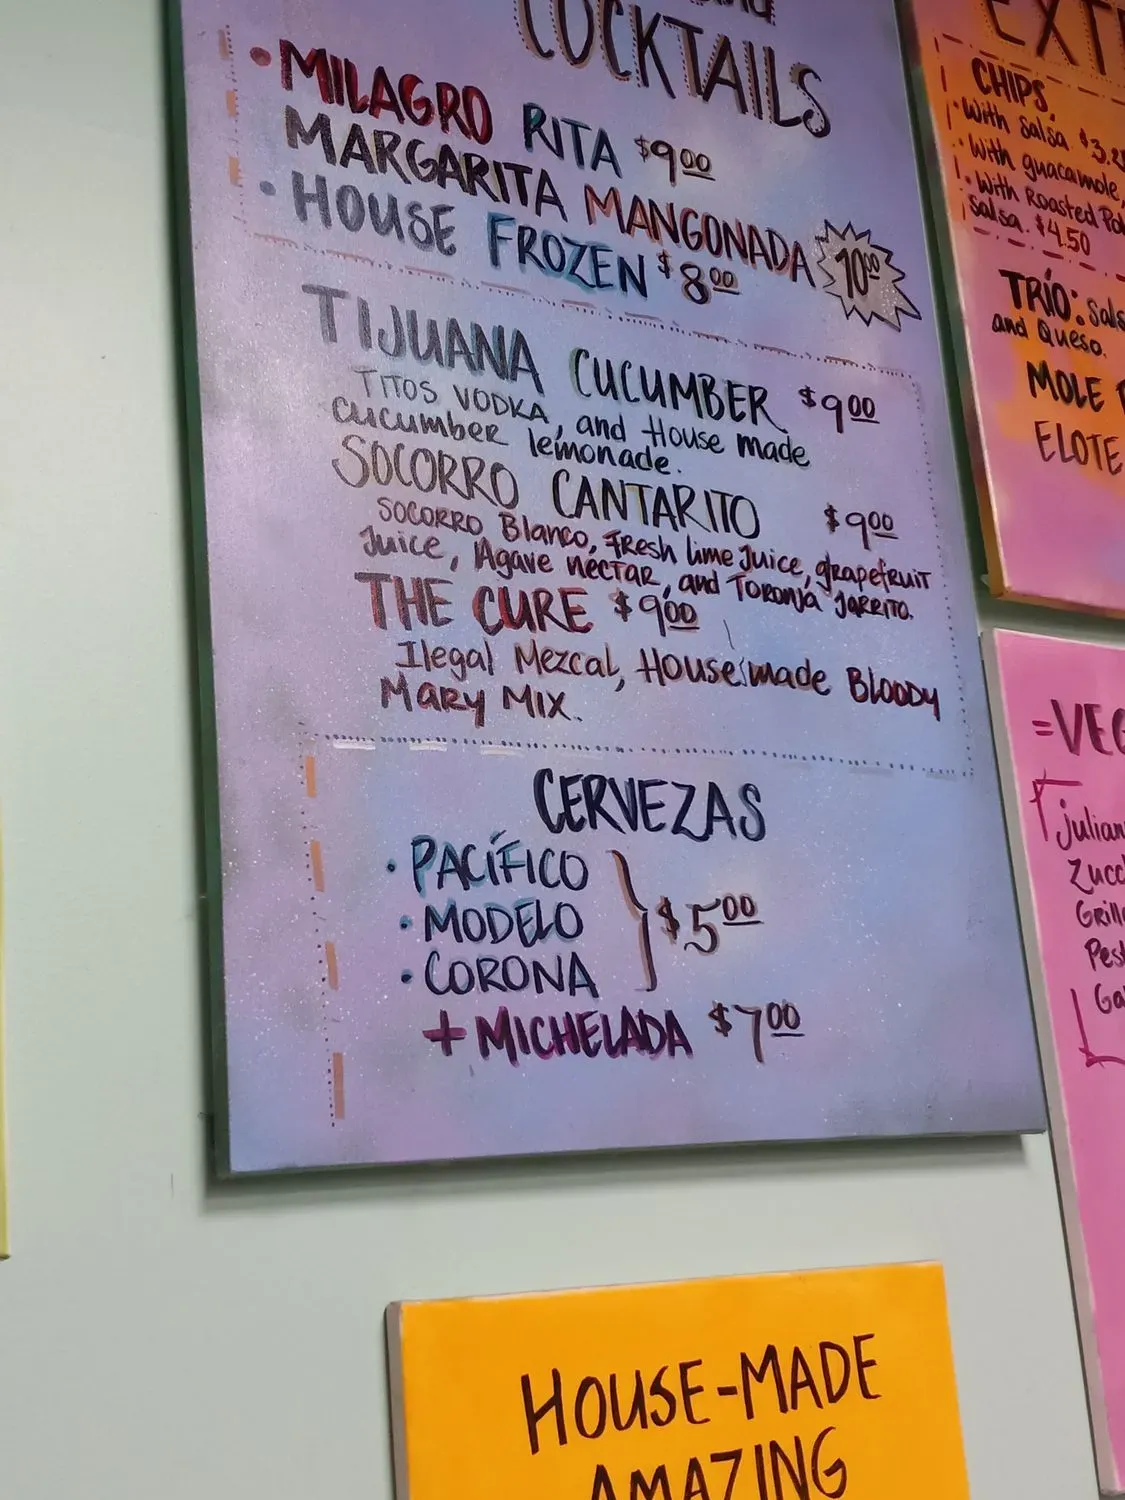 COCKTAILS
• MILAGRO RITA $9.00
MARGARITA MANGONADA 10.00
• HOUSE FROZEN $8.00
TIJUANA CUCUMBER $9.00
TITOS VODKA, and House made
cucumber lemonade.
SOCORRO CANTARITO $9.00
SOCORRO Blanco, Fresh lime Juice, grapefruit
Juice, Agave nectar, and Toronja Jarrito.
THE CURE $9.00
Ilegal Mezcal, House made Bloody
Mary Mix.
CERVEZAS
• PACÍFICO
• MODELO } $5.00
• CORONA
+ MICHELADA $7.00
CHIPS:
• With salsa $3.2
• With guacamole,
• With Roasted
salsa. $4.50
TRÍO:
and Queso.
MOLE
ELOTE
HOUSE-MADE
AMAZING